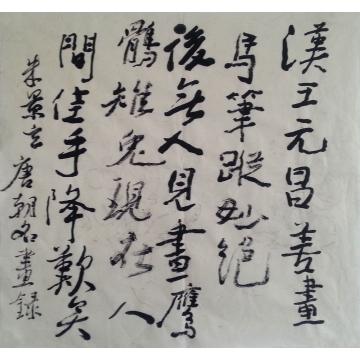 漢王元昌善畫
馬筆蹤妙絕
後無人見畫鷹
鶻雉兔現在人
間佳手降歎矣
朱景玄唐朝名畫録